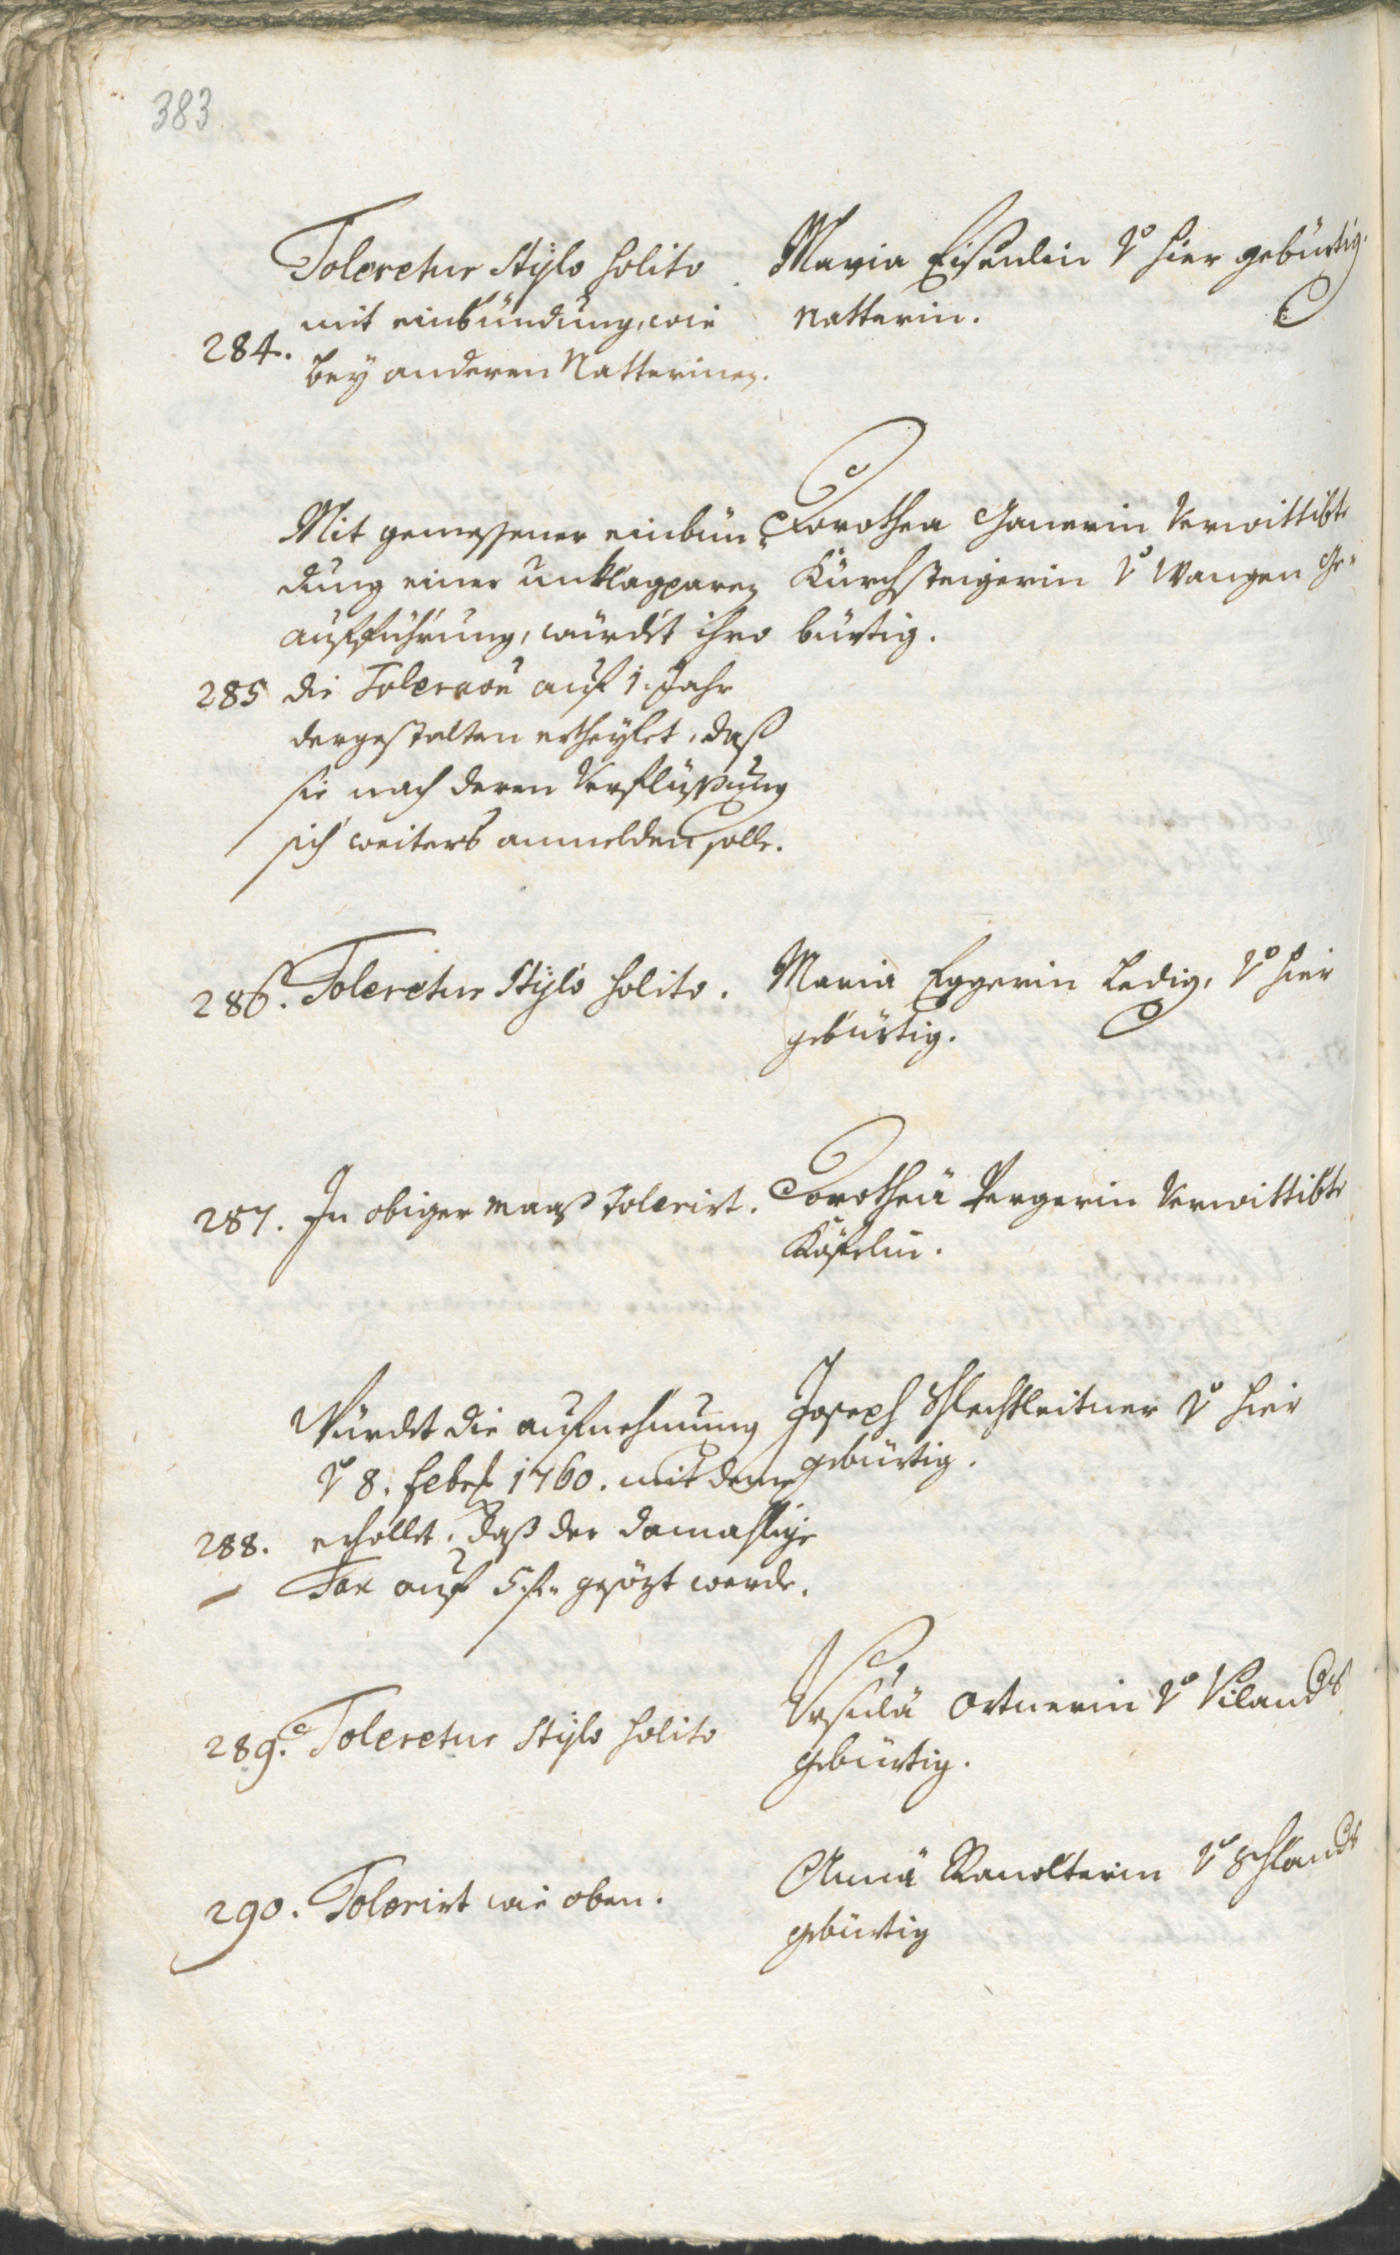 383
Toleretur Stÿlo solito
mit einbündung, wie
284.
beÿ anderen Natterinen.
Maria Eisenlin v hier gebürtig.
Natterin.
Mit gemessener einbün¬
dung einer unklagparen
aufführung, würdet ihro
285 die Toleraon auf 1. Jahr
dergestalten ertheÿlet, daß
sie nach deren Verflüssung
sich weiters anmelden solle.
Dorothea Ganerin Verwittibte
Kürchsteigerin v Wangen Ge¬
bürtig.
286. Toleretur Stÿlo solito.
Maria Eggerin Ledig, v hier
gebürtig.
287. In obiger maaß Tolerirt.
Dorothea Pergerin Verwittibte
Köstelin.
Würdet die aufnehmung
v 8. febr 1760. mit dem
288. erhollt, daß der damahlige
Tax auf 5 fr gesözt werde.
Joseph Schlechtleitner v hier
gebürtig.
289. Toleretur Stÿlo solito
Ursula Ortnerin v Vilanders
gebürtig.
290. Tolerirt wie oben.
Anna Ranolterin v Schlanders
gebürtig